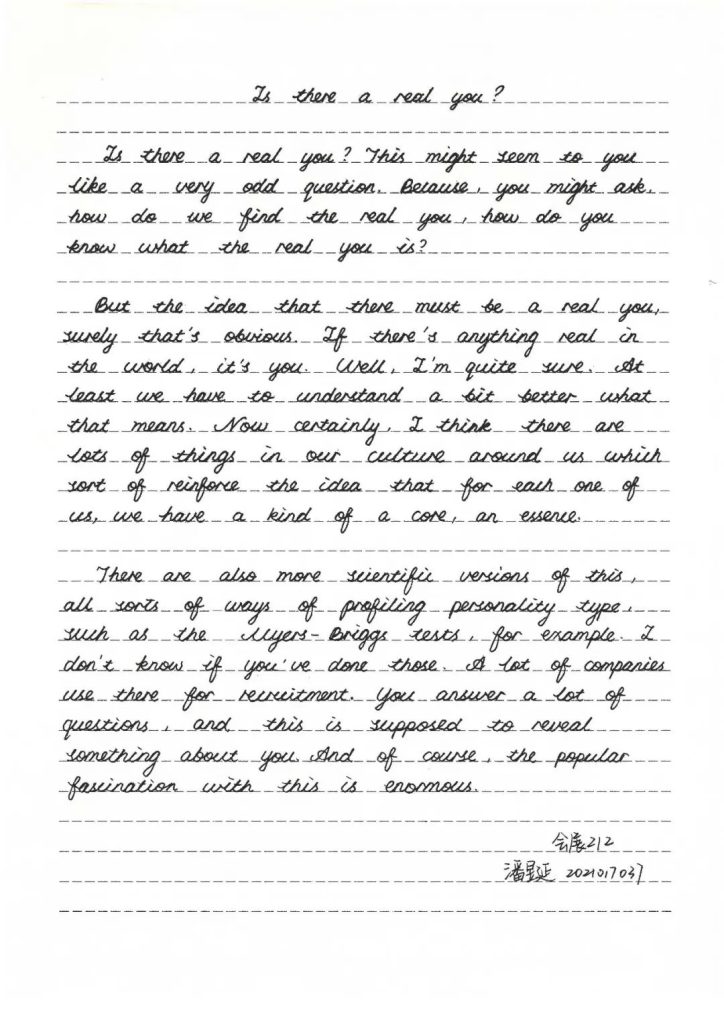 Is there a real you?
Is there a real you? This might seem to you
like a very odd question. Because, you might ask,
how do we find the real you, how do you
know what the real you is?
But the idea that there must be a real you,
surely that's obvious. If there's anything real in
the world, it's you. Well, I'm quite sure. At
least we have to understand a bit better what
that means. Now certainly, I think there are
lots of things in our culture around us which
sort of reinforce the idea that for each one of
us, we have a kind of a core, an essence.
There are also more scientific versions of this,
all sorts of ways of profiling personality type,
such as the Myers-Briggs tests, for example. I
don't know if you've done those. A lot of companies
use there for recruitment. You answer a lot of
questions, and this is supposed to reveal
something about you. And of course, the popular
fascination with this is enormous.
会展212
潘星延 2021017037